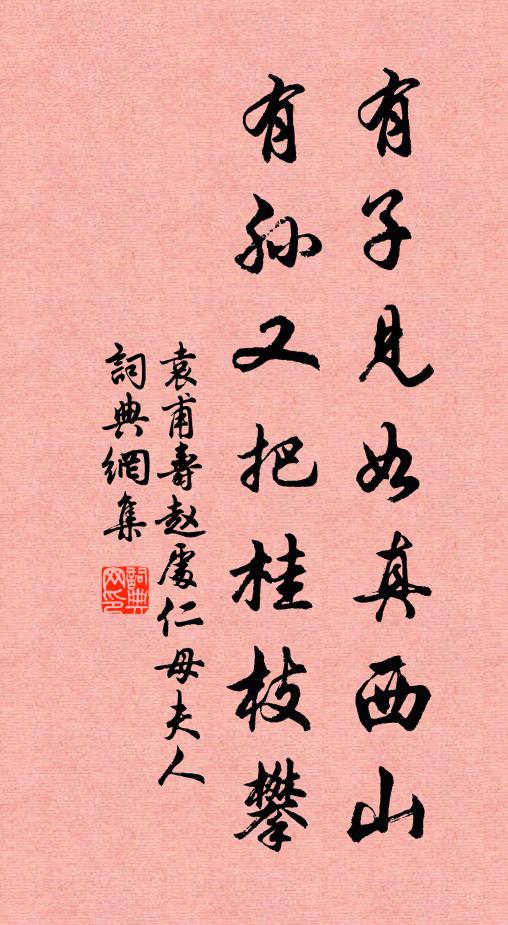 有子見如真西山
有孙又把桂枝攀
袁甫壽赵處仁母夫人
詞典網集
詞典网印